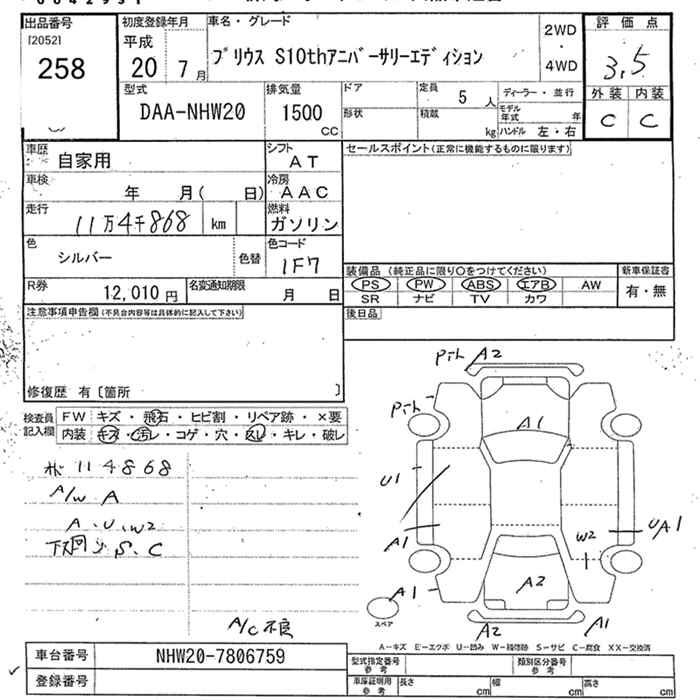 出品番号
[2052]
258
初度登録年月
平成
20 7月
車名・グレード
プリウス S10thアニバーサリーエディション
2WD
・
4WD
評価点
3.5
外装 内装
C C
型式
DAA-NHW20
排気量
1500
CC
ドア
形状
定員
5 人
積載
kg
ディーラー・並行
モデル年式 年
ハンドル 左・右
車歴
自家用
シフト
AT
車検
年 月( 日)
冷房
AAC
走行
11万4千868 km
燃料
ガソリン
色
シルバー
色替
色コード
1F7
R券
12,010円
名変通知期限
月 日
セールスポイント(正常に機能するものに限ります)
装備品 (純正品に限り○をつけてください)
新車保証書
PS PW ABS エアB AW
有・無
SR ナビ TV カワ
後日品
注意事項申告欄(不具合内容等は具体的に記入して下さい)
修復歴 有〔箇所 〕
検査員記入欄
FW キズ・飛石・ヒビ割・リペア跡・×要
内装 キズ・汚レ・コゲ・穴・スレ・キレ・破レ
114868
A/W A
A.U.W2
下廻り S.C
A/C不良
A2
A1
U1
A1
W2
UA1
A1
A2
A2
A1
スペア
A-キズ E-エクボ U-凹み W-補修跡 S-サビ C-腐食 XX-交換済
車台番号
NHW20-7806759
登録番号
型式指定番号
参考
類別区分番号
参考
車庫証明用
参考
長さ cm 幅 cm 高さ cm